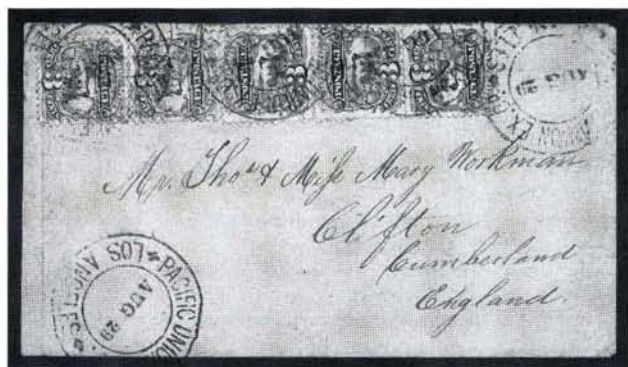 AUG 29
UNION EX. CO.
Mr. Thos & Miss Mary Workman
Clifton
Cumberland
England.
PACIFIC UNION
LOS ANGELES
AUG 29